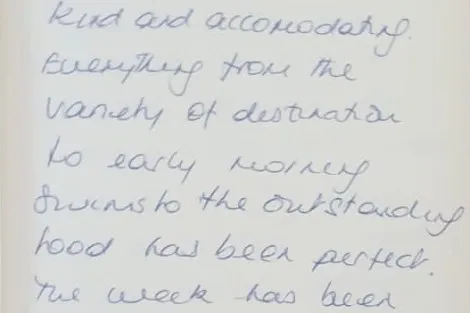 kind and accomodating.
Everything from the
variety of destination
to early morning
swims to the outstanding
food has been perfect.
The week has been